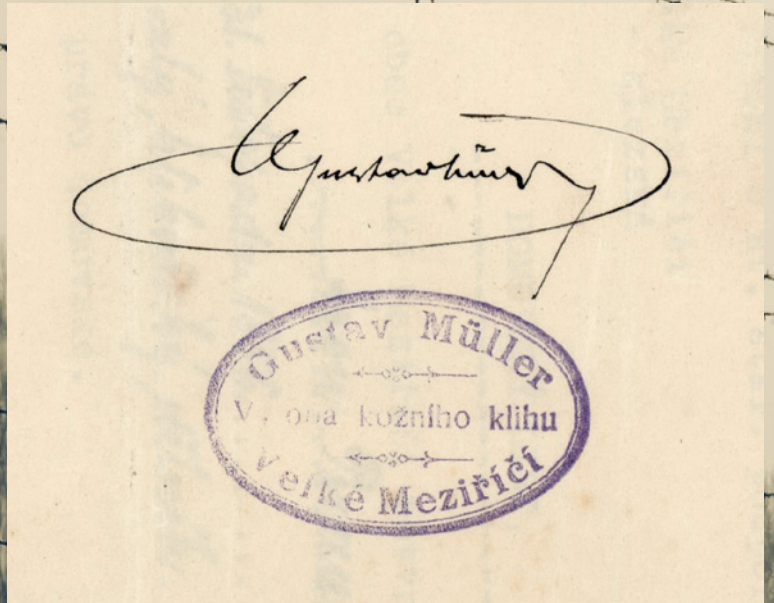 Gustav Müller
Gustav Müller
kožního klihu
Velké Meziříčí